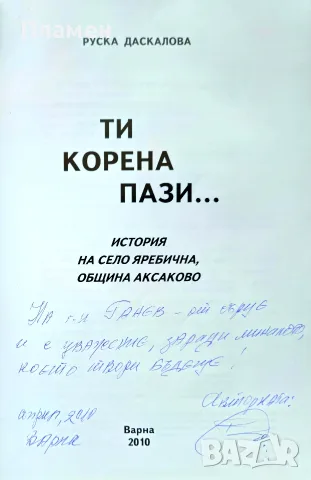 Пламен
РУСКА ДАСКАЛОВА
ТИ
КОРЕНА
ПАЗИ...
ИСТОРИЯ
НА СЕЛО ЯРЕБИЧНА,
ОБЩИНА АКСАКОВО
На г-н Ганев - от сърце
и с уважение, заради миналото,
което твори бъдеще!
Авторката:
април, 2010
Варна
Варна
2010
BAZAR